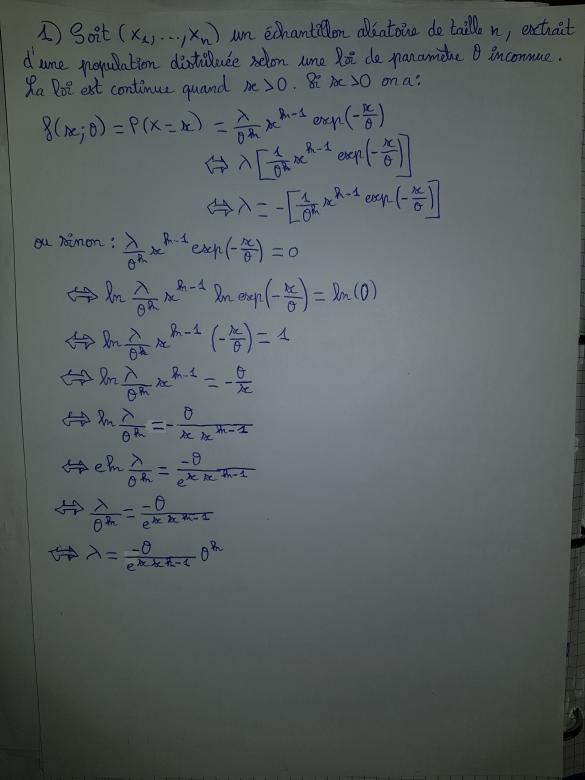 1) Soit (x₁, ..., xₙ) un échantillon aléatoire de taille n, extrait
d'une population distribuée selon une loi de paramètre θ inconnue.
La loi est continue quand x > 0. Si x > 0 on a :
f(x; θ) = P(X = x) = λ/θʰ xʰ⁻¹ exp(-x/θ)
⇔ λ [1/θʰ xʰ⁻¹ exp(-x/θ)]
⇔ λ = -[1/θʰ xʰ⁻¹ exp(-x/θ)]
ou sinon : λ/θʰ xʰ⁻¹ exp(-x/θ) = 0
⇔ ln λ/θʰ xʰ⁻¹ ln exp(-x/θ) = ln(0)
⇔ ln λ/θʰ xʰ⁻¹ (-x/θ) = 1
⇔ ln λ/θʰ xʰ⁻¹ = -θ/x
⇔ ln λ/θʰ = -θ/(x xʰ⁻¹)
⇔ eln λ/θʰ = -θ/(e^(x xʰ⁻¹))
⇔ λ/θʰ = -θ/(e^(x xʰ⁻¹))
⇔ λ = -θ/(e^(x xʰ⁻¹)) θʰ